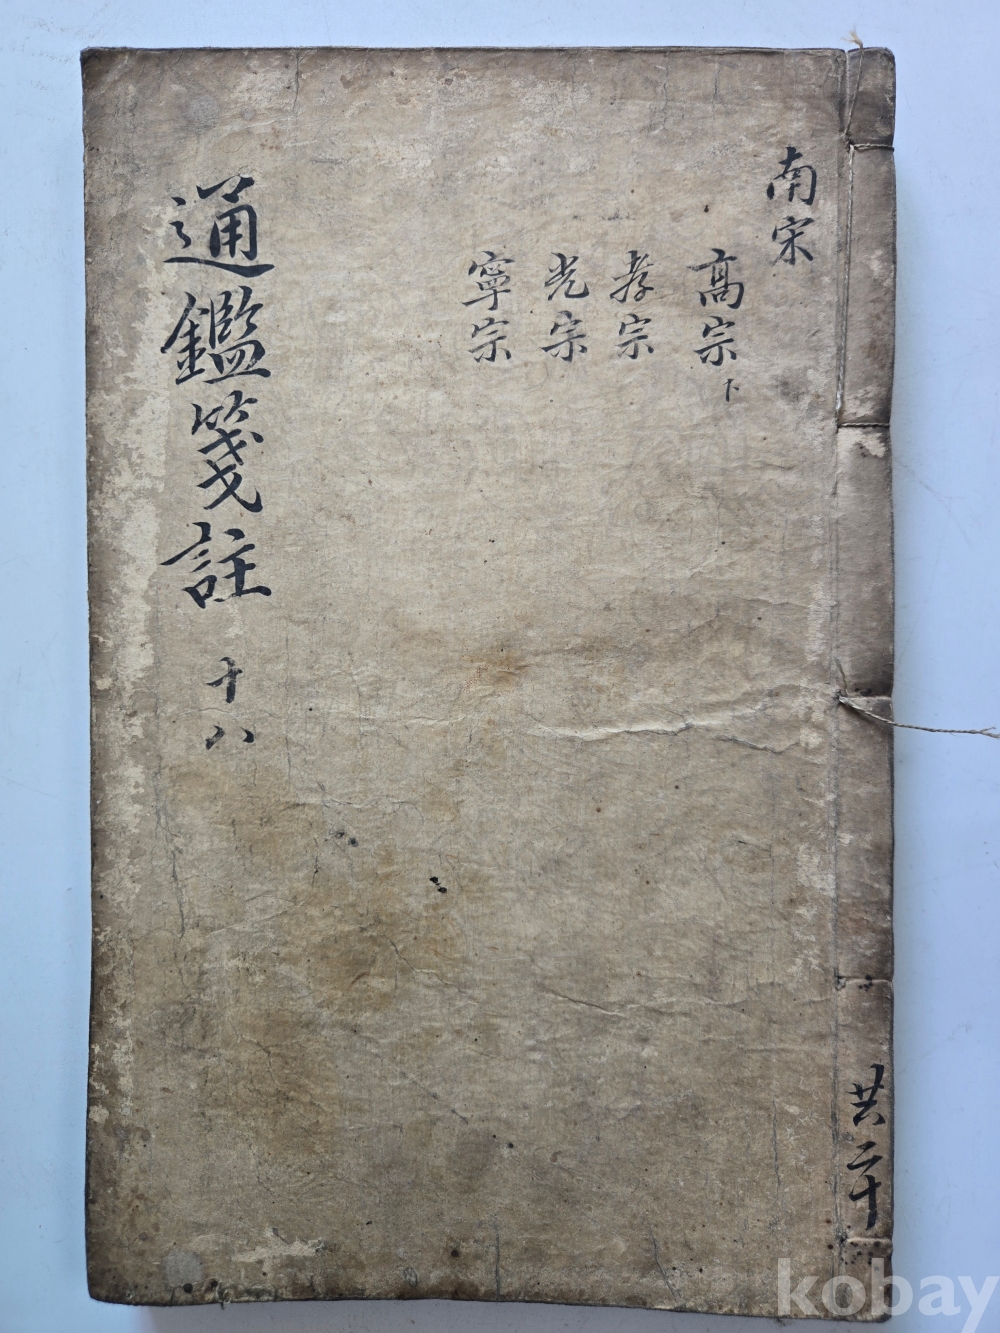 南宋
高宗下
孝宗
光宗
寧宗
通鑑箋註 十八
共二十
kobay